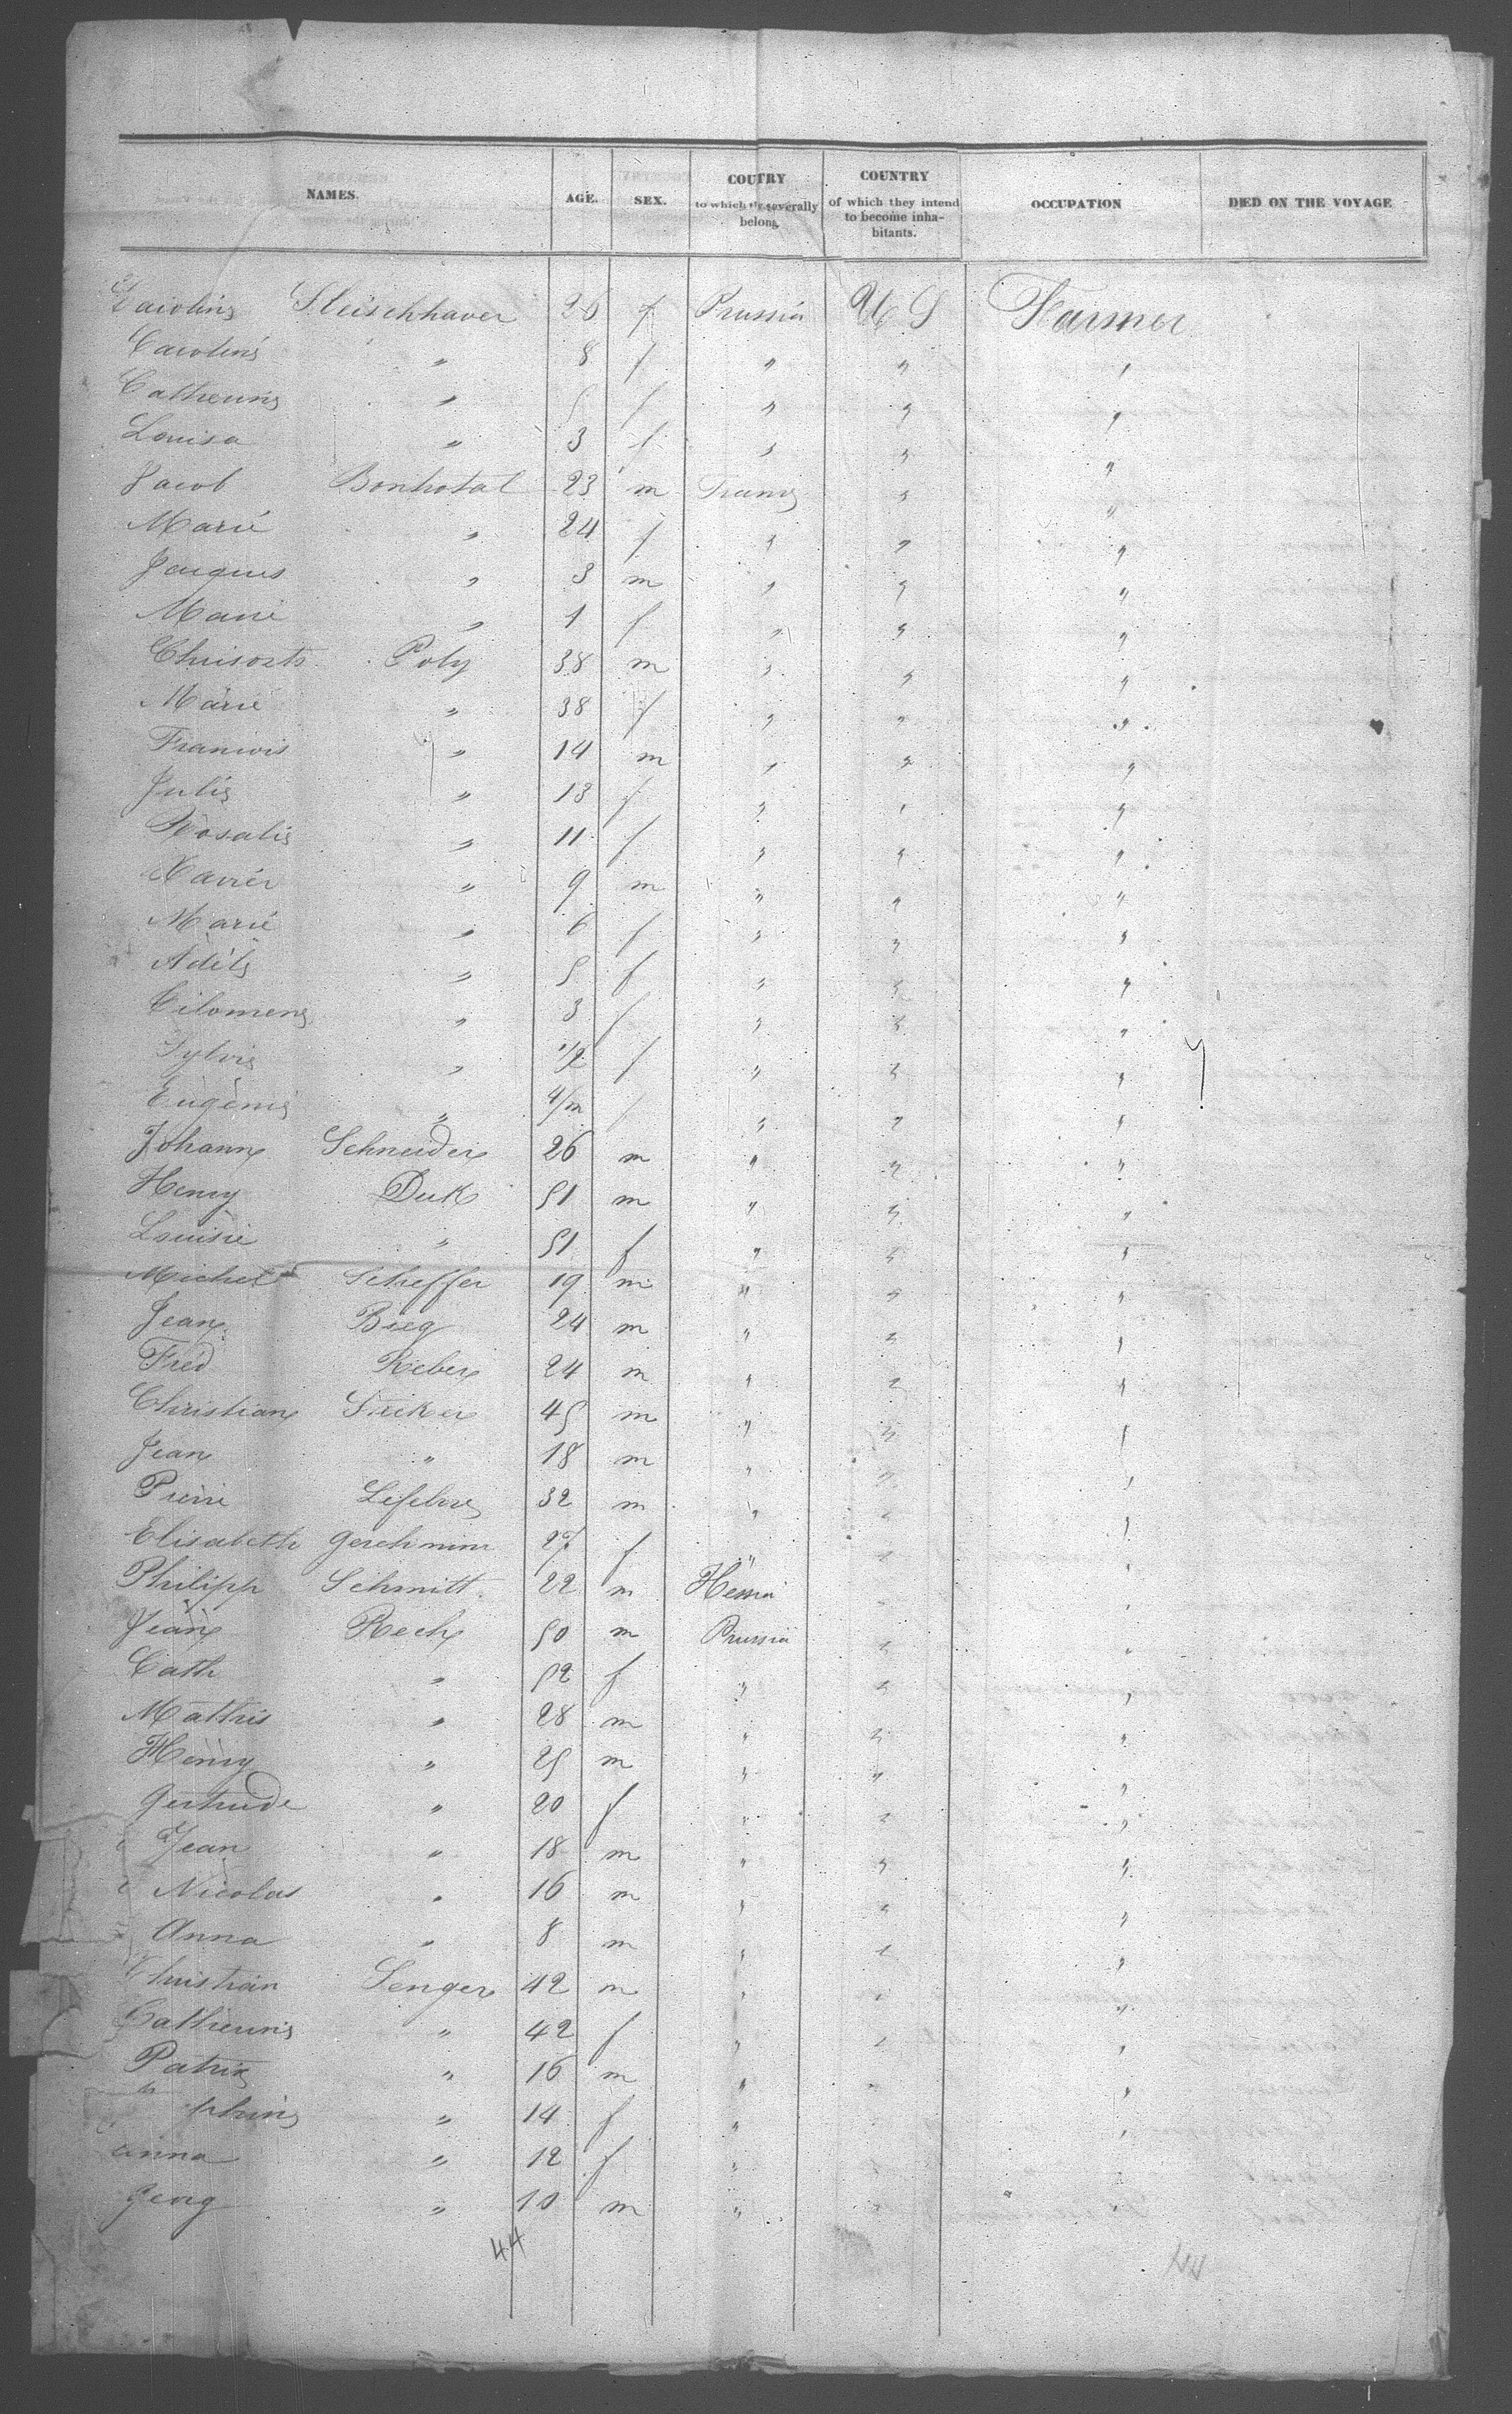 NAMES. AGE. SEX. COUTRY to which they severally belong. COUNTRY of which they intend to become inha-bitants. OCCUPATION DIED ON THE VOYAGE
Carolins Fleischhauer 26 f Prussia U S Farmer
Carolins " 8 f " " "
Catherins " 5 f " " "
Louisa " 3 f " " "
Jacob Bonhotal 23 m Franz " "
Marie " 24 f " " "
Jacques " 3 m " " "
Marie " 1 f " " "
Poly 38 m " " "
Marie " 38 f " " "
Francois " 14 m " " "
Julis " 13 f " " "
Rosalis " 11 f " " "
Xavier " 9 m " " "
Marie " 6 f " " "
Adéls " 5 f " " "
Filomens " 3 f " " "
Sylvis " 1/2 f " " "
Eugénis " 4/m / " " "
Johann Schneider 26 m " " "
Henry Duk 51 m " " "
Louisie " 51 f " " "
Michel Scheffer 19 m " " "
Jean Bieg 24 m " " "
Fréd Reber 24 m " " "
Christian 45 m " " "
Jean " 18 m " " "
Pierre Lefebvre 32 m " " "
Elisabeth 27 f " " "
Philipp Schmitt 22 m Hessia " "
Jean Rech 50 m Prussia " "
Cath " 52 f " " "
Mathis " 28 m " " "
Henry " 25 m " " "
Gertrude " 20 f " " "
Jean " 18 m " " "
Nicolas " 16 m " " "
Anna " 8 m " " "
Christian Senger 42 m " " "
Catherins " 42 f " " "
Patrik " 16 m " " "
phins " 14 f " " "
Anna " 12 f " " "
Georg " 10 m " " "
44
44